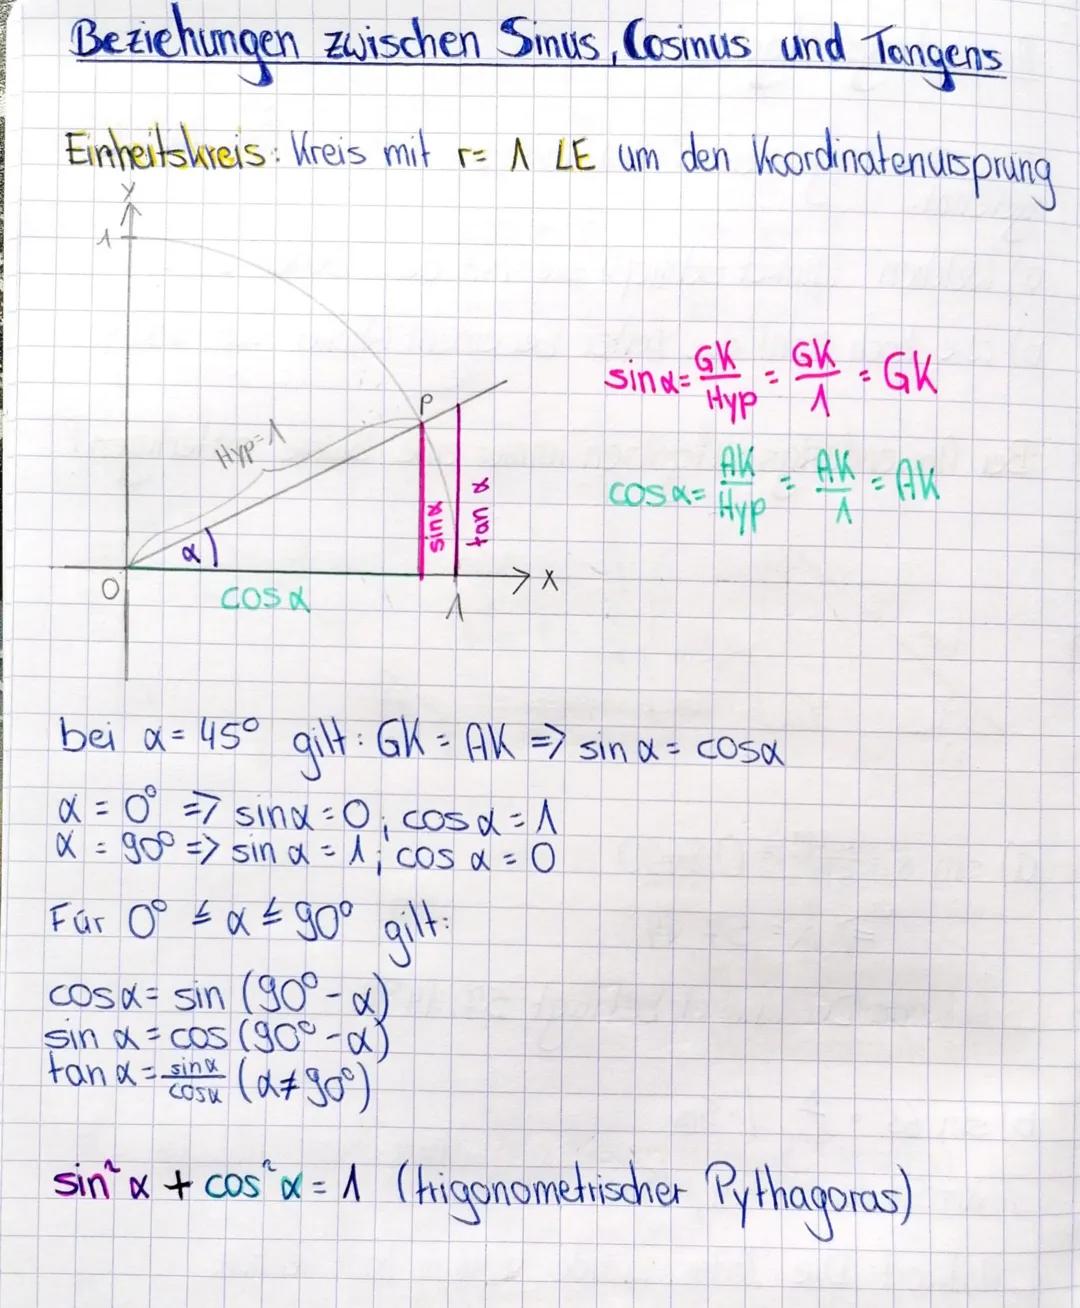 Beziehungen zwischen Sinus, Cosinus und Tangens
Einheitskreis: Kreis mit r= 1 LE um den Koordinatenursprung
y
1
sinα = GK/Hyp = GK/1 = GK
P
Hyp=1
cosα = AK/Hyp = AK/1 = AK
sinα
tan α
α
0
cosα
1
x
bei α = 45° gilt: GK = AK => sin α = cosα
α = 0° => sinα = 0; cosα = 1
α = 90° => sin α = 1; cos α = 0
Für 0° ≤ α ≤ 90° gilt:
cosα = sin (90° - α)
sin α = cos (90° - α)
tan α = sinα/cosα (α ≠ 90°)
sin²α + cos²α = 1 (trigonometrischer Pythagoras)